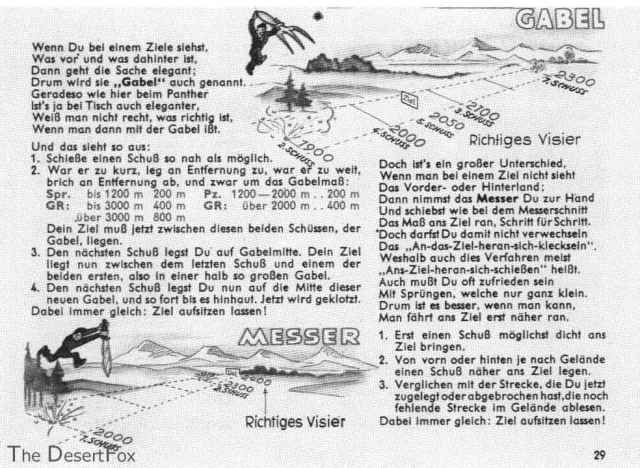 GABEL
Wenn Du bei einem Ziele siehst,
Was vor und was dahinter ist,
Dann geht die Sache elegant;
Drum wird sie „Gabel“ auch genannt.
Geradeso wie hier beim Panther
Ist's ja bei Tisch auch eleganter,
Weiß man nicht recht, was richtig ist,
Wenn man dann mit der Gabel ißt.
Und das sieht so aus:
1. Schieße einen Schuß so nah als möglich.
2. War er zu kurz, leg an Entfernung zu, war er zu weit,
brich an Entfernung ab, und zwar um das Gabelmaß:
Spr. bis 1200 m 200 m Pz. 1200—2000 m . . 200 m
GR: bis 3000 m 400 m GR: über 2000 m . . 400 m
über 3000 m 800 m
Dein Ziel muß jetzt zwischen diesen beiden Schüssen, der
Gabel, liegen.
3. Den nächsten Schuß legst Du auf Gabelmitte. Dein Ziel
liegt nun zwischen dem letzten Schuß und einem der
beiden ersten, also in einer halb so großen Gabel.
4. Den nächsten Schuß legst Du nun auf die Mitte dieser
neuen Gabel, und so fort bis es hinhaut. Jetzt wird geklotzt.
Dabei immer gleich: Ziel aufsitzen lassen!
2300
1. SCHUSS
Ziel
2100
3. SCHUSS
2050
5. SCHUSS
2000
4. SCHUSS
1900
2. SCHUSS
Richtiges Visier
Doch ist's ein großer Unterschied,
Wenn man bei einem Ziel nicht sieht
Das Vorder- oder Hinterland;
Dann nimmst das Messer Du zur Hand
Und schiebst wie bei dem Messerschnitt
Das Maß ans Ziel ran, Schritt für Schritt.
Doch darfst Du damit nicht verwechseln
Das „An-das-Ziel-heran-sich-kleckseln“.
Weshalb auch dies Verfahren meist
„Ans-Ziel-heran-sich-schießen“ heißt.
Auch mußt Du oft zufrieden sein
Mit Sprüngen, welche nur ganz klein.
Drum ist es besser, wenn man kann,
Man fährt ans Ziel erst näher ran.
1. Erst einen Schuß möglichst dicht ans
Ziel bringen.
2. Von vorn oder hinten je nach Gelände
einen Schuß näher ans Ziel legen.
3. Verglichen mit der Strecke, die Du jetzt
zugelegt oder abgebrochen hast, die noch
fehlende Strecke im Gelände ablesen.
Dabei immer gleich: Ziel aufsitzen lassen!
MESSER
2300
2. SCHUSS
2000
1. SCHUSS
Richtiges Visier
The DesertFox
29